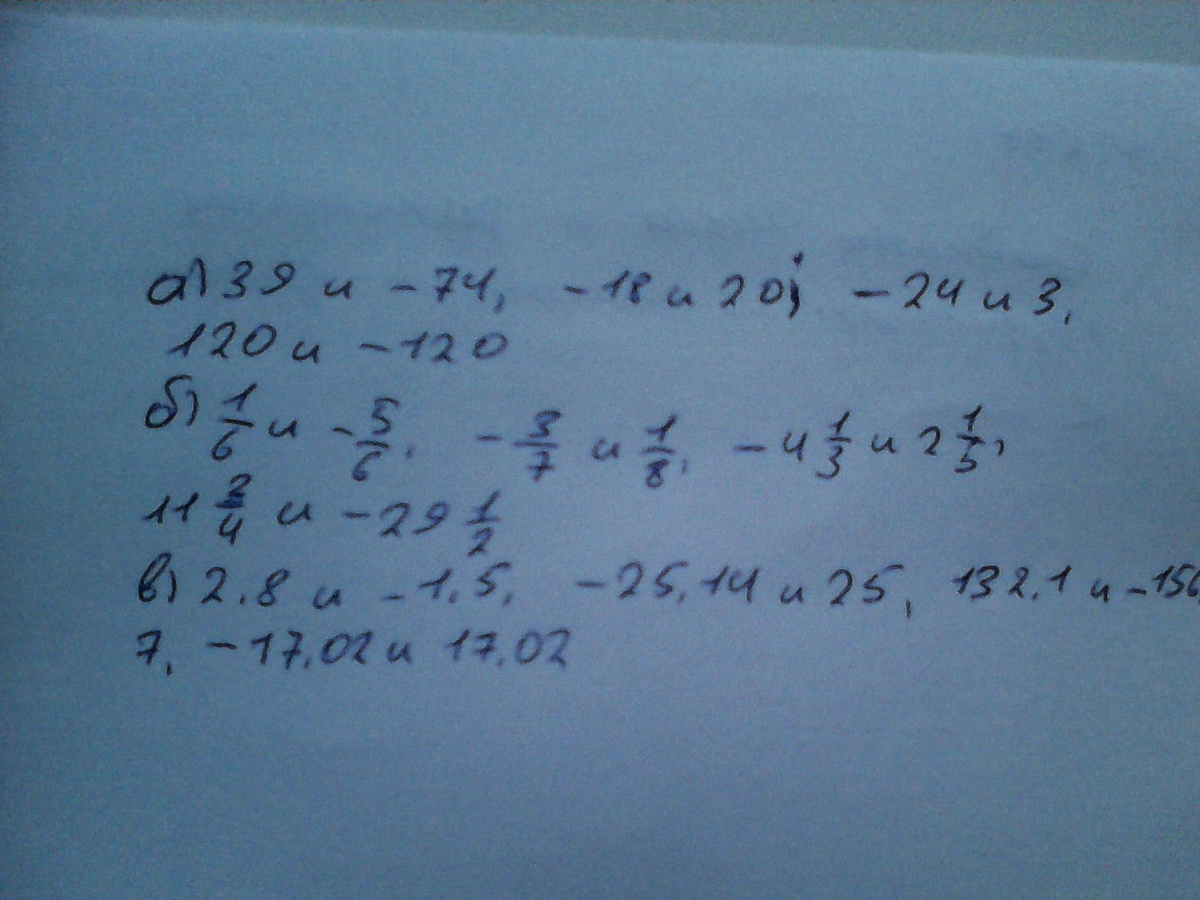 а) 39 и -74, -18 и 20; -24 и 3,
120 и -120
б) 1/6 и -5/6, -3/7 и 1/8, -4 1/3 и 2 1/5,
11 3/4 и -29 1/2
в) 2.8 и -1.5, -25.14 и 25, 132.1 и -156
7, -17.02 и 17.02